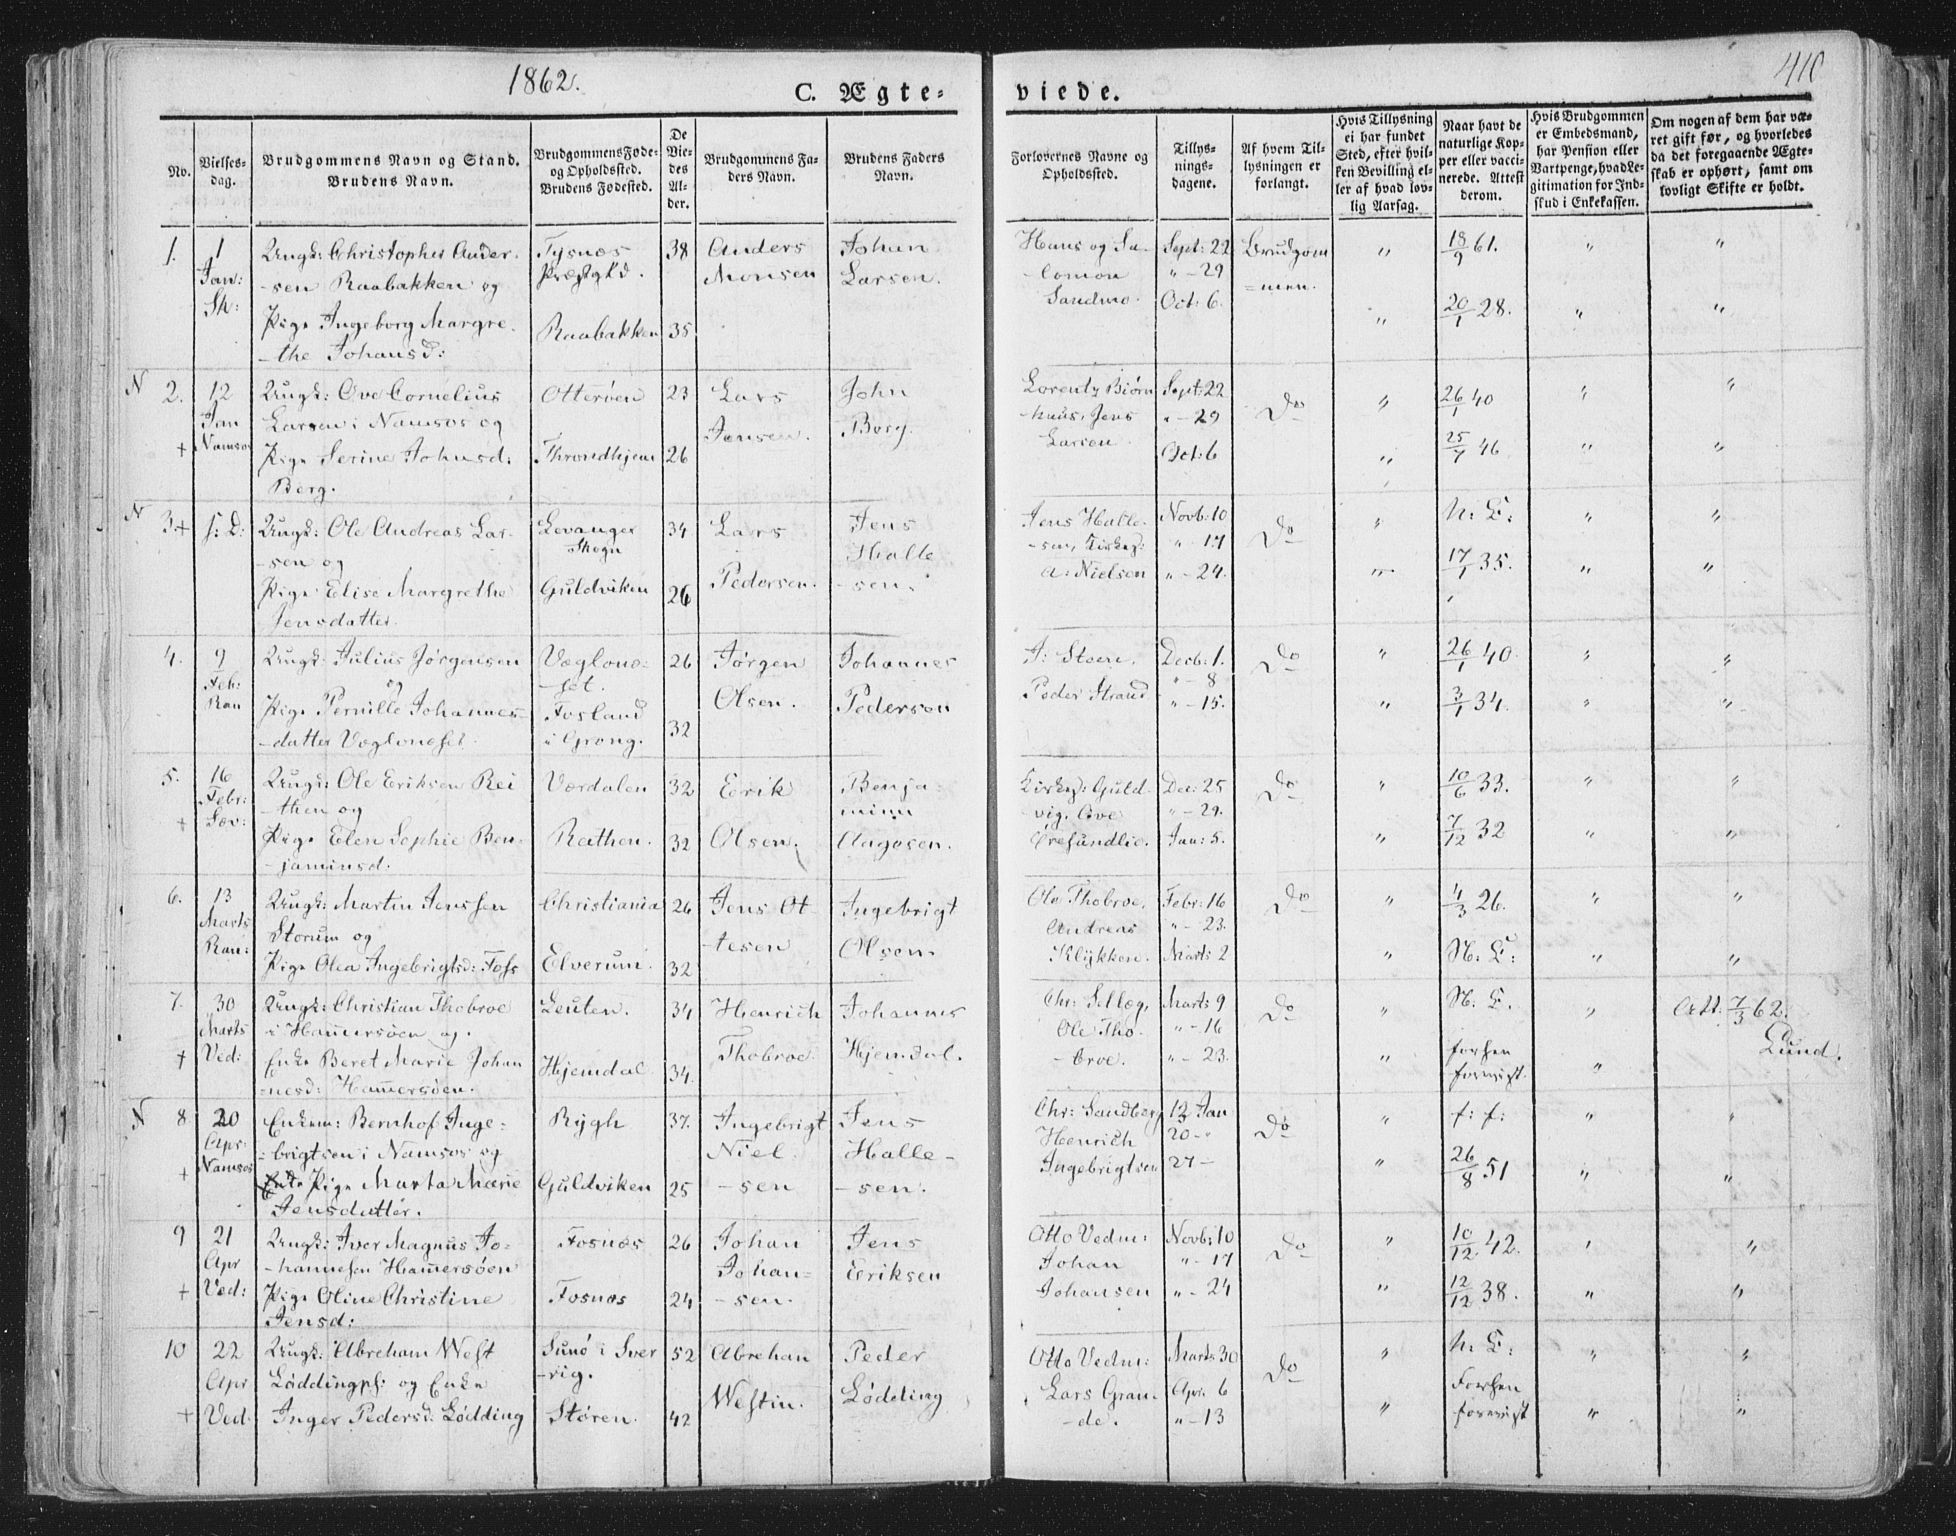 1862.
C. Ægte-
viede.
410
No.
Vielses-
dag.
Brudgommens Navn og Stand.
Brudens Navn.
Brudgommens Føde-
og Opholdssted.
Brudens Fødested.
De
Vie-
des
Al-
der.
Brudgommens Fa-
ders Navn.
Brudens Faders
Navn.
Forlovernes Navne og
Opholdssted.
Tillys-
nings-
dagene.
Af hvem Til-
lysningen er
forlangt.
Hvis Tillysning
ei har fundet
Sted, efter hvil-
ken Bevilling el-
ler af hvad lov-
lig Aarsag.
Naar havt de
naturlige Kop-
per eller vacci-
nerede. Attest
derom.
Hvis Brudgommen
er Embedsmand,
har Pension eller
Vartpenge, hvad Le-
gitimation for Ind-
skud i Enkekassen.
Om nogen af dem har væ-
ret gift før, og hvorledes
da det foregaaende Ægte-
skab er ophørt, samt om
lovligt Skifte er holdt.
1. 1 Jan: Sk:
Ungk: Christopher Ander-
-sen Raabakken og
Pige Ingeborg Margre-
-the Johansd:
Tysnæs
Præstgld.
Raabakken
38
35
Anders
Monsen
Johan
Larsen.
Hans og Sa-
-lomon
Sandmo.
Sept: 22
" - 29
Oct: 6.
Brudgom
=men.
" 18/9 61. " "
" 20/1 28. " "
N 2. 12 Jan Namsos +
Ungk: Ove Cornelius
Larsen i Namsos og
Pige Serine Johnsd:
Berg.
Otterøen
Throndhjem
23
26
Lars
Jensen.
John
Berg.
Lorentz Biørn
-huus, Jens
Larsen.
Sept: 22
" - 29
Oct: 6
Do
" 26/1 40 " "
" 25/7 46 " "
N 3. + s: D:
Ungk: Ole Andreas Lar-
-sen og
Pige Elise Margrethe
Jensdatter.
Levanger
Skogn
Guldviken
34
26
Lars
Pedersen.
Jens
Halle
-sen.
Jens Halle-
-sen, Kirkes:
A: Nielsen
Novb: 10
" - 17
" - 24.
Do
" N: E: " "
" 17/1 35. " "
4. 9 Feb: Ran
Ungk: Julius Jørgensen
og
Pige Pernille Johannes-
-datter Væglonaset.
Væglone-
-set.
Fosland
i Grong.
26
32
Jørgen
Olsen.
Johannes
Pedersen
J: Steen,
Peder Strand
Decb: 1.
" - 8
" - 15.
Do
" 26/1 40. " "
" 3/1 34. " "
5. 16 Febr: Sæv: +
Ungk: Ole Eriksen Rei
-then og
Pige Elen Sophie Ben-
-jaminsd.
Værdalen
Rathen.
32
32
Eerik
Olsen.
Benja-
minn
Aagesen.
Kirkes: Guld-
-vig, Ove
Ørefundlie.
Dec: 25
" - 29.
Jan: 5.
Do
" 10/6 33. " "
" 7/12 32 " "
6. 13 Marts Ran:
Ungk: Martin Jenssen
Storum og
Pige Olea Ingebrigtsd: Foss
Christiania
Elverum.
26
32
Jens Ot-
-tesen
Ingebrigt
Olsen.
Ole Thobroe,
Andreas
Klykken.
Febr: 16
" - 23.
Marts 2
Do
" 4/3 26. " "
" N: E: " "
7. 30 Marts Ved: +
Ungk: Christian Thobroe
i Hammersøen og
Enke Beret Marie Johan
-nesd: Hammersøen.
Leuten.
Hjemdal
34
34.
Henrich
Thobroe
Johannes
Hjemdal.
Chr: Sellæg,
Ole Tho-
-broe.
Marts 9
" - 16
" - 23.
Do
" N. E. " Att: 7/3 62.
Lund.
" forhen
forevist. "
N 8 20 Apr: Namsos +
Enkem: Bernhof Inge-
-brigtsen i Namsos og
Pige Marta Marie
Jensdatter.
Rygh
Guldviken
37.
25
Ingebrigt
Niel-
-sen
Jens
Halle-
-sen.
Chr: Sandberg
Henrich
Ingebrigtsen
12 Jan
20 - "
27 -
Do
" f: f: " "
" 26/8 51 " "
9 21 Apr Ved: +
Ungk: Iver Magnus Jo-
-hannesen Hammersøen
Pige Oline Christine
Jensd:
Fosnæs
Fosnæs
26
24
Johan
Johan-
-sen.
Jens
Eriksen
Otto Vedm:
Johan
Johansen
Novb: 10
" - 17
" - 24
Do
" 10/12 42. " "
" 12/12 38. " "
10 22 Apr Ved. +
Ungk: Abreham West
Løddingps: og Enke
Inger Pedersd: Lødding
Sunø i Sver
-rig.
Støren.
52
42
Abrehan
Westin.
Peder
Lødding
Otto Vedm:
Lars Gran-
-de.
Marts 30
Apr: 6
" - 13
Do
" N: E: " "
" Forhen
forevist " "